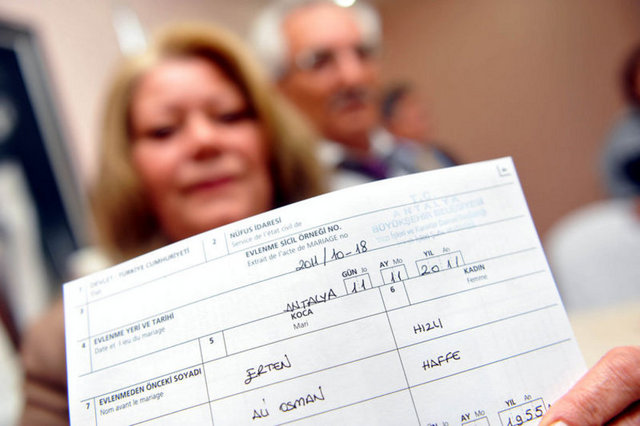 1 DEVLET: TÜRKİYE CUMHURİYETİ
État
2 NÜFUS İDARESİ
Service de l'état civil de
T.C.
ANTALYA
BÜYÜKŞEHİR BELEDİYESİ
3 EVLENME SİCİL ÖRNEĞİ NO.
Extrait de l'acte de MARIAGE no
2011/10-18
4 EVLENME YERİ VE TARİHİ
Date et lieu du mariage
ANTALYA
GÜN Jo AY Mo YIL An
11 11 2011
5 KOCA
Mari
6 KADIN
Femme
7 EVLENMEDEN ÖNCEKİ SOYADI
Nom avant le mariage
ERTEN
HIZLI
ALİ OSMAN
HAFFE
AY Mo YIL An
1955